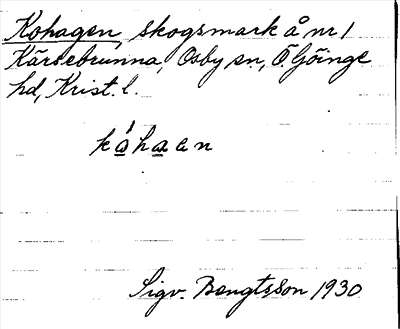 Kohagen, skogsmark å nr 1
Kärsebrunna, Osby sn, Ö. Göinge
hd, Krist. l.
kåhaen
Sigv. Bengtsson 1930